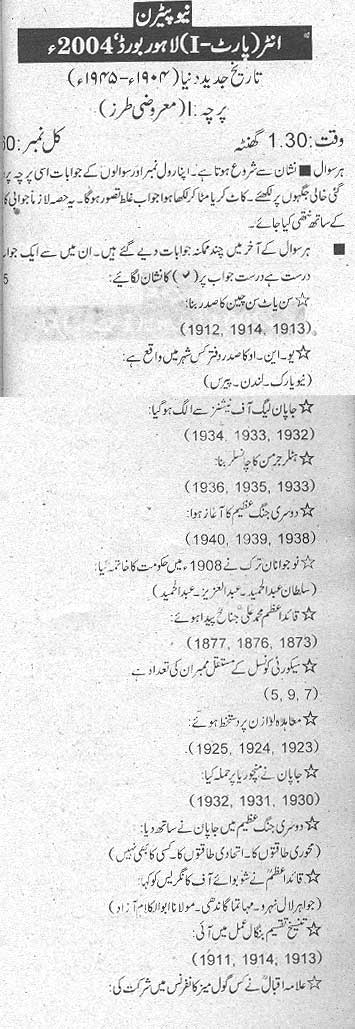 نیو پیٹرن
انٹر (پارٹ-I) لاہور بورڈ، 2004ء
تاریخ جدید دنیا (۱۹۰۴ء-۱۹۴۵ء)
پرچہ: I (معروضی طرز)
وقت: 1.30 گھنٹہ کل نمبر:
ہر سوال ■ نشان سے شروع ہوتا ہے۔ اپنا رول نمبر اور سوالوں کے جوابات اسی پرچہ پر
گئی خالی جگہوں پر لکھئے۔ کاٹ کر یا مٹا کر لکھا ہوا جواب غلط تصور ہوگا۔ یہ حصہ لازماً جوابی کا
کے ساتھ نتھی کیا جائے۔
■ ہر سوال کے آخر میں چند ممکنہ جوابات دیے گئے ہیں۔ ان میں سے ایک جواب
درست ہے درست جواب پر (✓) کا نشان لگائیے: 5
☆ سن یات سن چین کا صدر بنا:
(1912, 1914, 1913)
☆ یو۔این۔او کا صدر دفتر کس شہر میں واقع ہے:
(نیویارک۔ لندن۔ پیرس)
☆ جاپان لیگ آف نیشنز سے الگ ہو گیا:
(1934, 1933, 1932)
☆ ہٹلر جرمن کا چانسلر بنا:
(1936, 1935, 1933)
☆ دوسری جنگ عظیم کا آغاز ہوا:
(1940, 1939, 1938)
☆ نوجوانان ترک نے 1908ء میں حکومت کا خاتمہ کیا:
(سلطان عبدالحمید۔ عبدالعزیز۔ عبدالحمید)
☆ قائداعظم محمد علی جناحؒ پیدا ہوئے:
(1877, 1876, 1873)
☆ سیکورٹی کونسل کے مستقل ممبران کی تعداد ہے
(5, 9, 7)
☆ معاہدہ لوازن پر دستخط ہوئے:
(1925, 1924, 1923)
☆ جاپان نے منچوریا پر حملہ کیا:
(1932, 1931, 1930)
☆ دوسری جنگ عظیم میں جاپان نے ساتھ دیا:
(محوری طاقتوں کا۔ اتحادی طاقتوں کا۔ کسی کا بھی نہیں)
☆ قائداعظمؒ نے شو بوائے آف کانگریس کو کہا:
(جواہر لال نہرو۔ مہاتما گاندھی۔ مولانا ابوالکلام آزاد)
☆ تنسیخ تقسیم بنگال عمل میں آئی:
(1911, 1914, 1913)
☆ علامہ اقبالؒ نے کس گول میز کانفرنس میں شرکت کی: